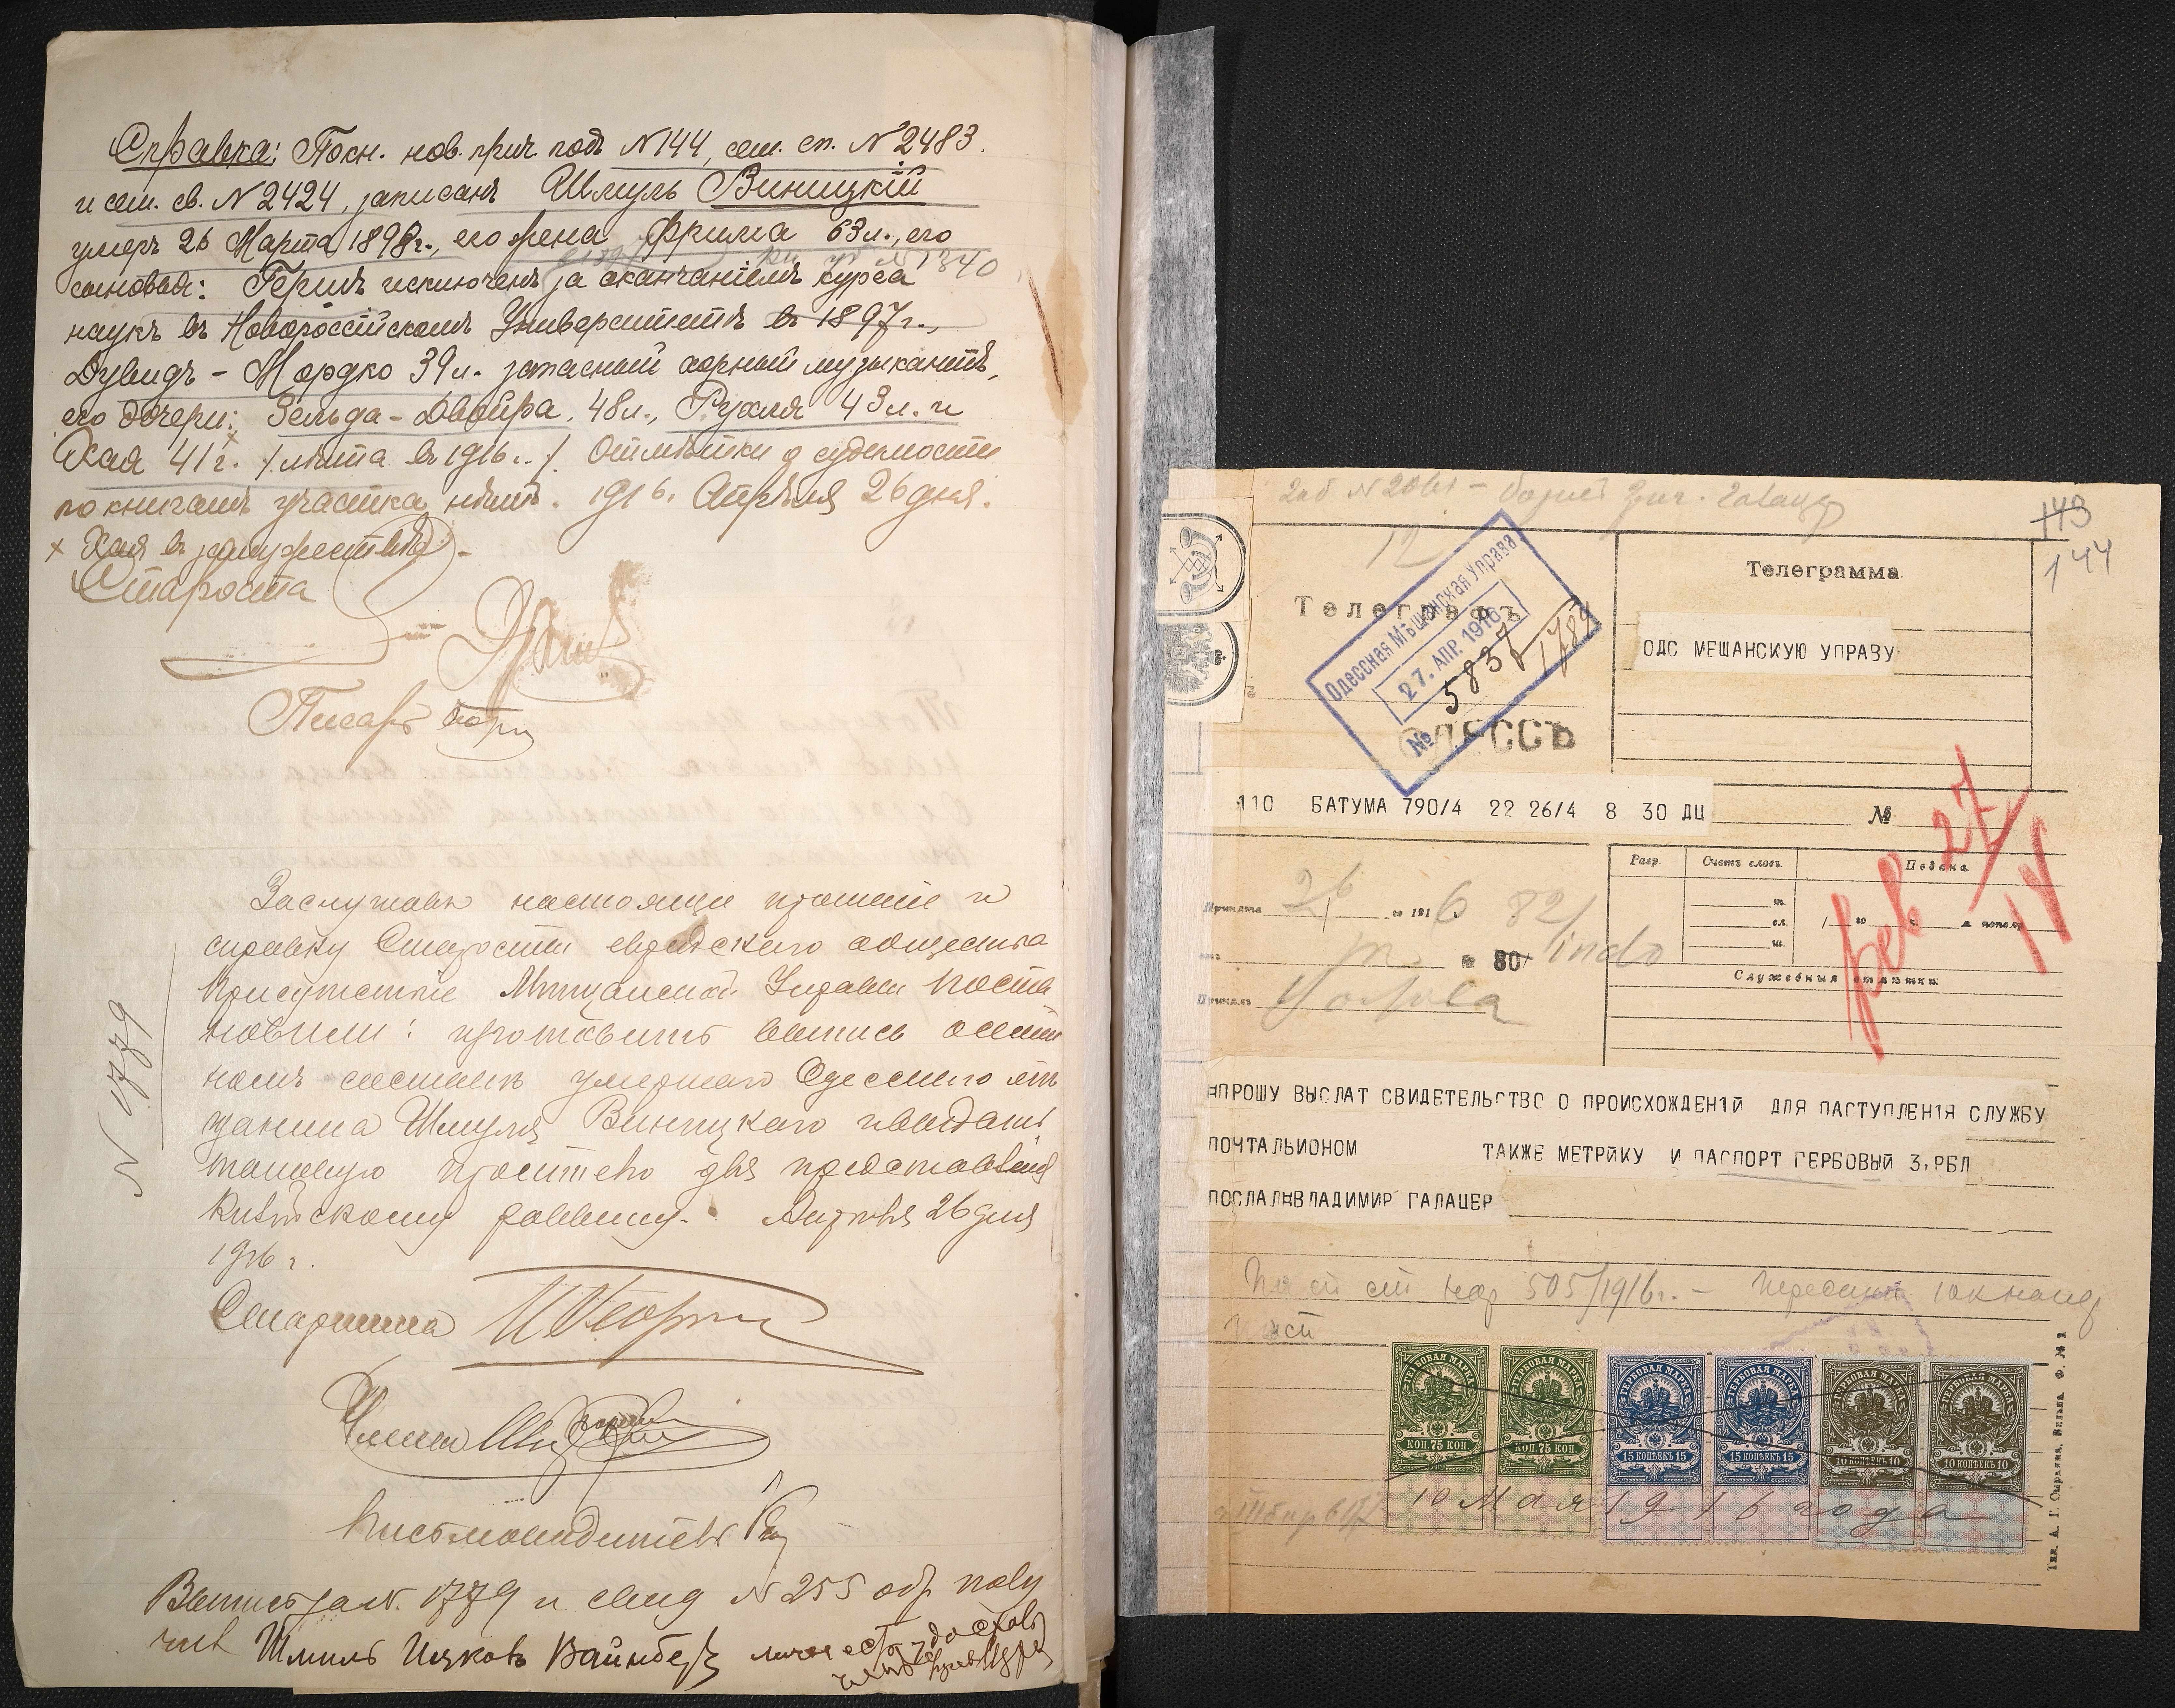 Справка: Посн. нов. прич. подъ N144, сем. сп. N2483.
и сем. св. N2424, записанъ Шмуль Виницкій
умеръ 26 Марта 1898г., его жена Фрима 63л., его
N1340
сыновья: Гершъ исключенъ за окончаніемъ курса
наукъ въ Новороссійскомъ Университетѣ въ 1897г.,
Дувидъ-Мордко 39л. запасный хорный музыкантъ,
его дочери: Зельда-Двойра 48л., Рухля 43л. и
Хая 41г. /лѣта въ 1916г./. Отмѣтки о судимости
по книгамъ участка нѣтъ. 1916г. Апрѣля 26 дня.
x Хая въ замужествѣ -
Староста
Писарь
Заслушавъ настоящее прошеніе и
справку Старосты еврейскаго общества
Присутствіе Мѣщанской Управы поста
новили: изготовить выпись о семей
номъ составѣ умершаго Одесскаго мѣ
щанина Шмуля Виницкаго и выдать
таковую просителю для представленія
Кіевскому раввину. Апрѣля 26 дня
1916 г.
N 1779
Старшина
Члены
Письмоводитель
Выпись за N. 1779 и свид N 255 обр полу
чилъ Шмиль Ицковъ Вайнберг
143
144
12
Телеграфъ
Одесская Мѣщанская Управа
27. АПР. 1916
№ 5837
1789
ОДЕССЪ
Телеграмма
ОДС МЕШАНСКУЮ УПРАВУ
110 БАТУМА 790/4 22 26/4 8 30 ДЦ
№
27/IV
Разр.
Счетъ словъ.
Подана
Принята 26 го 1916
82/
№ 80/
Принялъ
Служебныя отмѣтки:
ЯПРОШУ ВЫСЛАТ СВИДЕТЕЛЬСТВО О ПРОИСХОЖДЕН1Й ДЛЯ ПАСТУПЛЕН1Я СЛУЖБУ
ПОЧТАЛЬИОНОМ ТАКЖЕ МЕТРЙКУ И ПАСПОРТ ГЕРБОВЫЙ 3,РБЛ
ПОСЛАЛ=ВЛАДИМИР ГАЛАЦЕР
505/1916г. -
ГЕРБОВАЯ МАРКА
КОП. 75 КОП.
ГЕРБОВАЯ МАРКА
КОП. 75 КОП.
ГЕРБОВАЯ МАРКА
15 КОПѢЕКЪ 15
ГЕРБОВАЯ МАРКА
15 КОПѢЕКЪ 15
ГЕРБОВАЯ МАРКА
10 КОПѢЕКЪ 10
ГЕРБОВАЯ МАРКА
10 КОПѢЕКЪ 10
10 Мая 1916 года
Тип. А. Г. Сыркина, Вильна. Ф. № 2